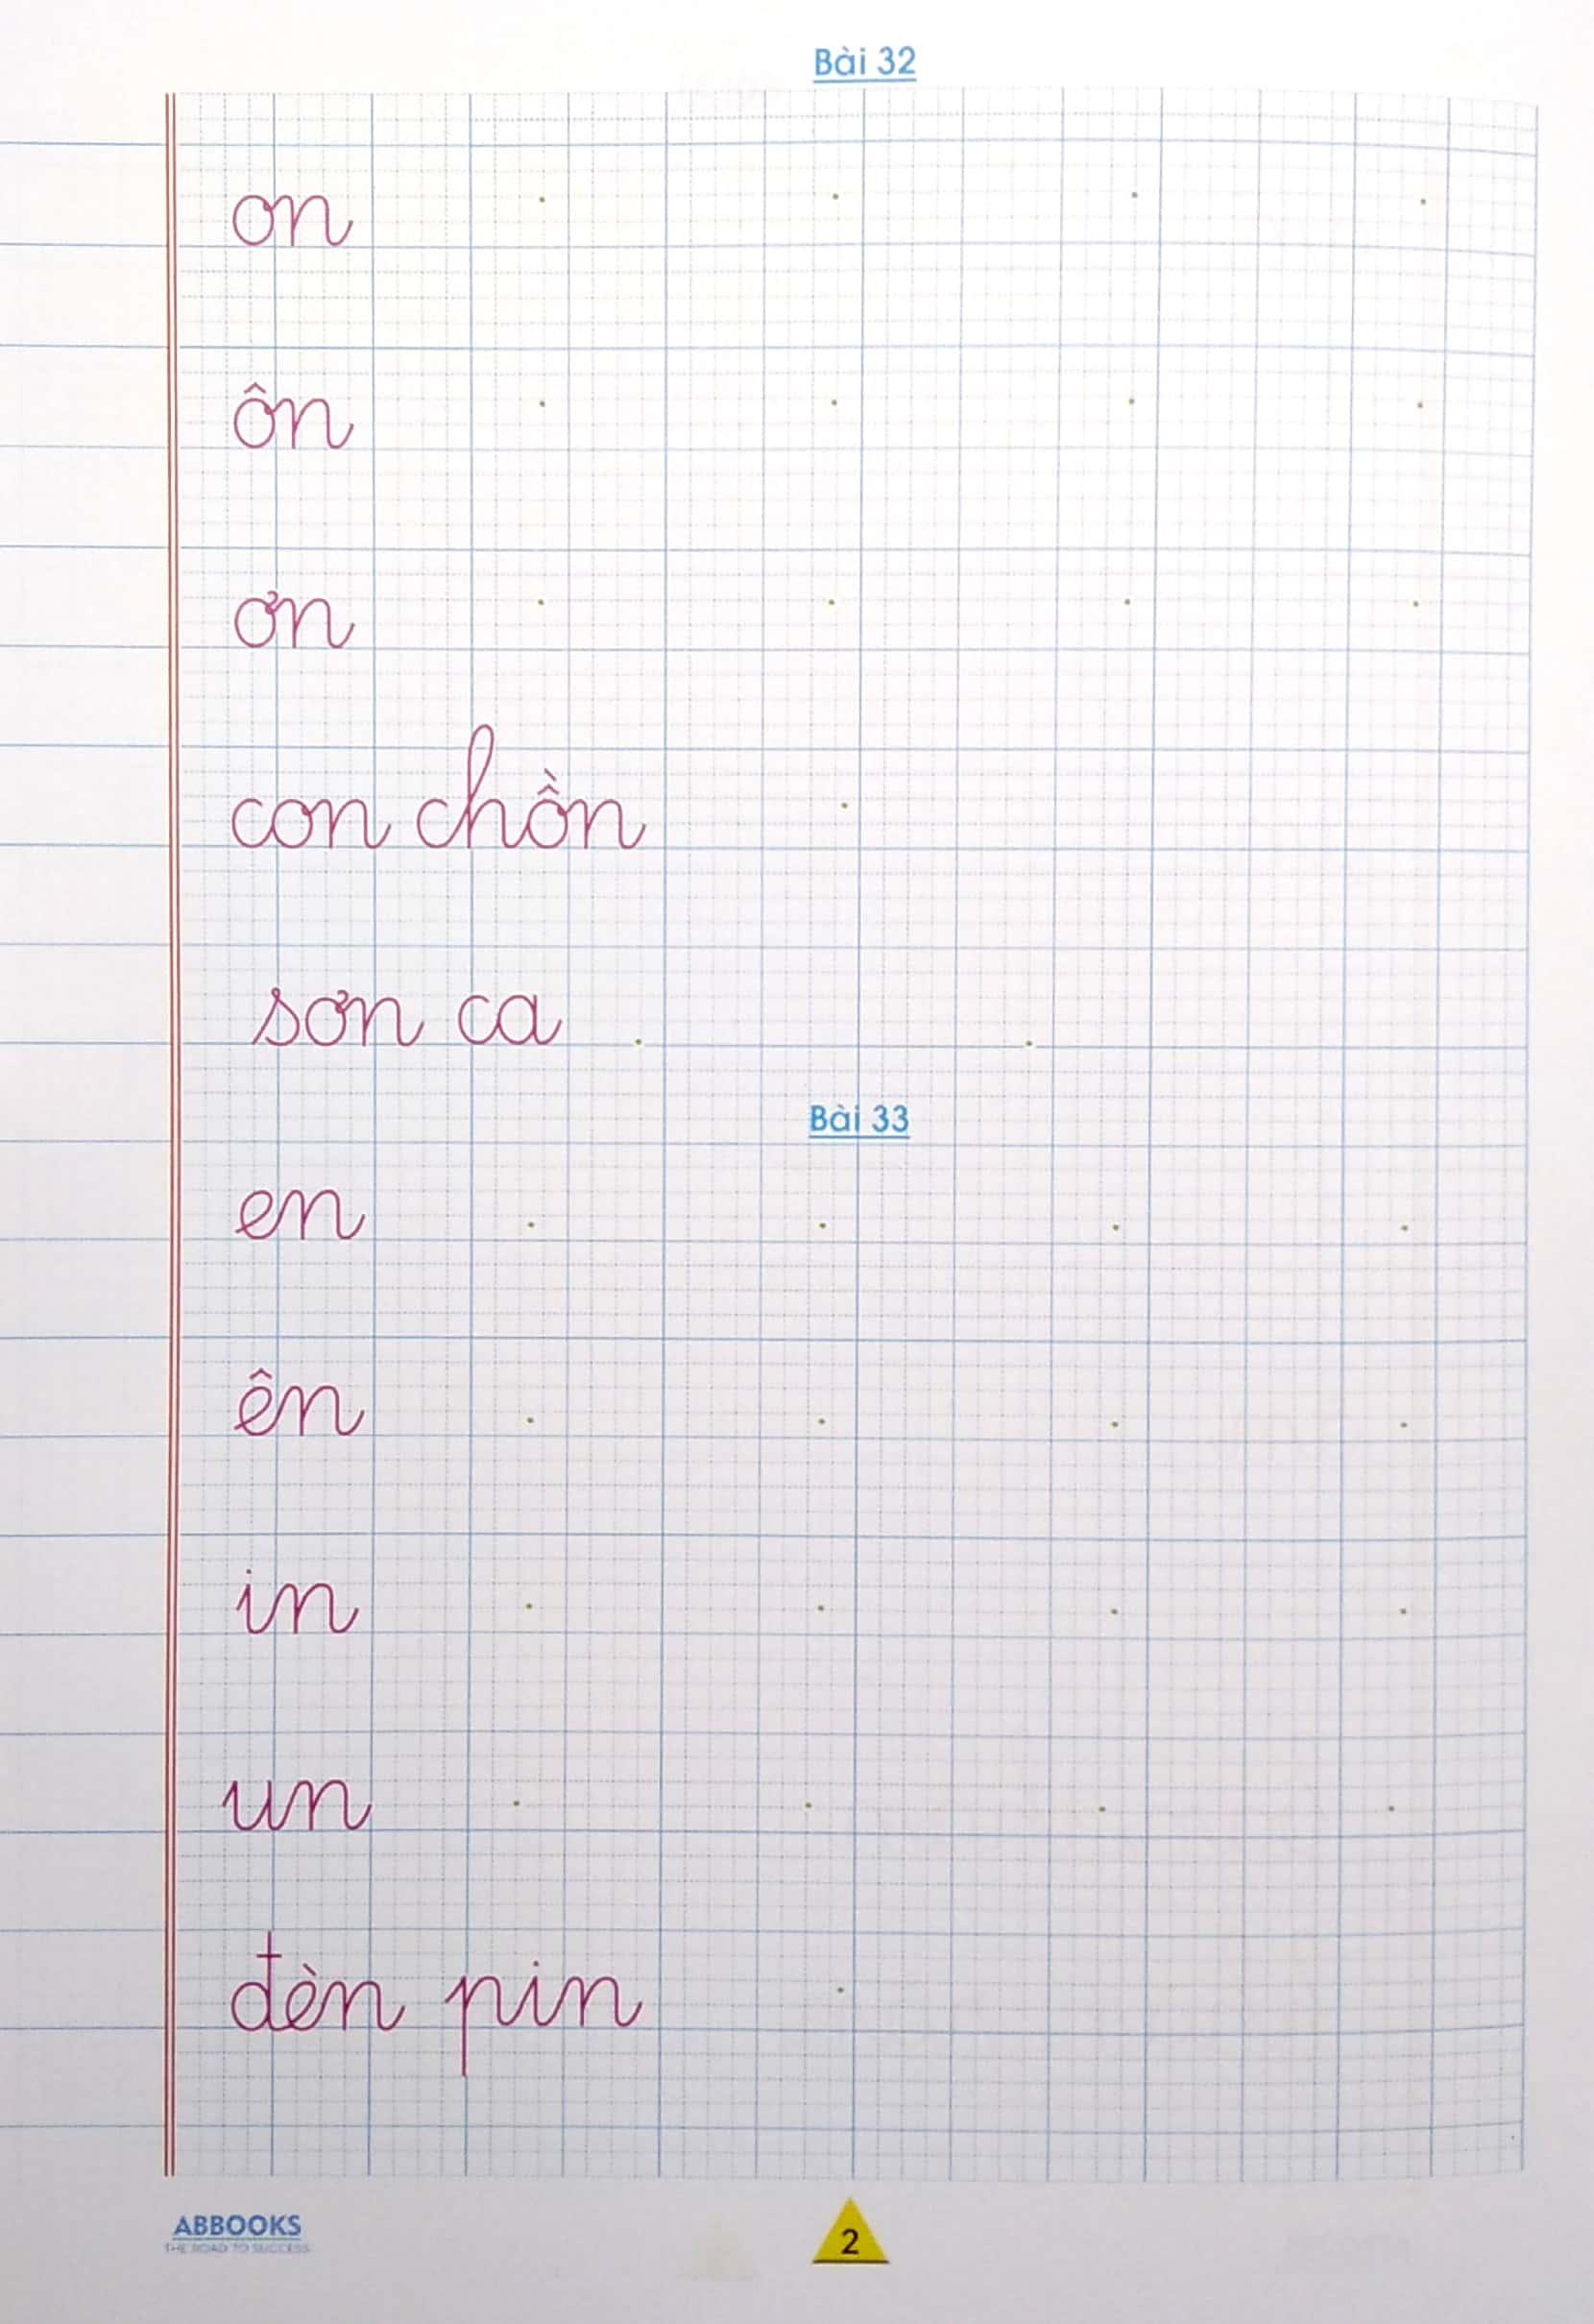 Bài 32
on
ôn
ơn
con chồn
sơn ca
Bài 33
en
ên
in
un
đèn pin
ABBOOKS
THE ROAD TO SUCCESS
2